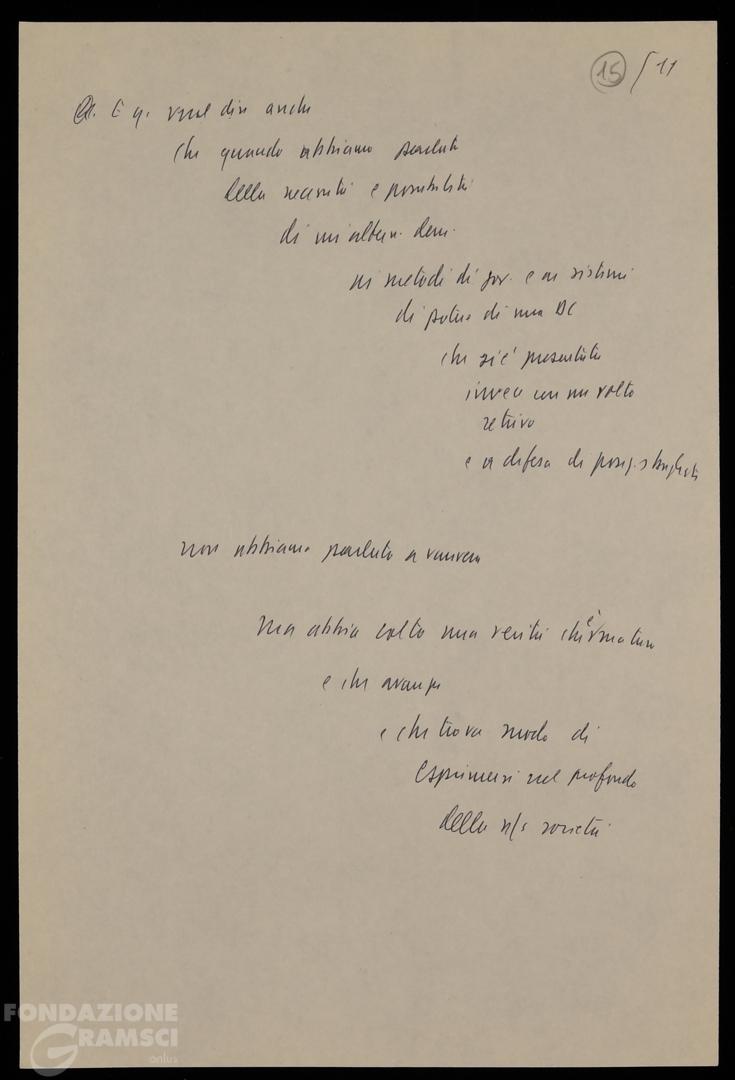 15 / 11
E q. vuol dire anche
che quando abbiamo parlato
della necessità e possibilità
di un'altern. dem.
ai metodi di gov. e ai sistemi
di potere di una DC
che si è presentata
invece con un volto
retrivo
e a difesa di posiz. sbagliate
non abbiamo parlato a vanvera
ma abbia colto una verità che è matura
e che avanza
e che trova modo di
esprimersi nel profondo
della n/s società
FONDAZIONE
GRAMSCI
onlus